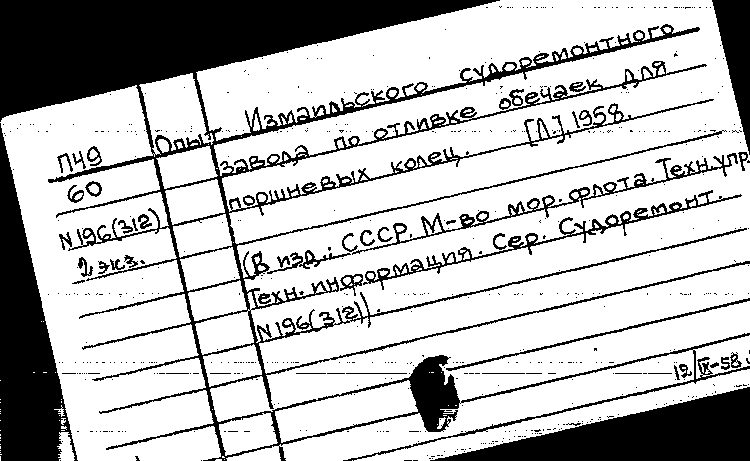 Опыт Измаильского судоремонтного
П49 завода по отливке обечаек для
60 поршневых колец. [Л.], 1958.
N196(312) (В изд.: СССР. М-во мор. флота. Техн. упр.
2 экз. Техн. информация. Сер. Судоремонт.
N196(312)).
12/IX-58